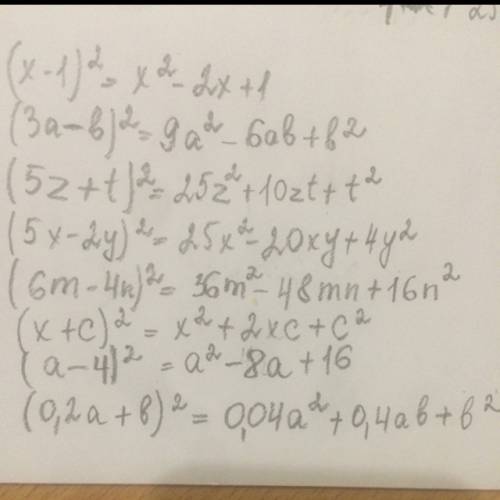 (x-1)² = x² - 2x + 1
(3a-b)² = 9a² - 6ab + b²
(5z+t)² = 25z² + 10zt + t²
(5x-2y)² = 25x² - 20xy + 4y²
(6m-4n)² = 36m² - 48mn + 16n²
(x+c)² = x² + 2xc + c²
(a-4)² = a² - 8a + 16
(0,2a+b)² = 0,04a² + 0,4ab + b²